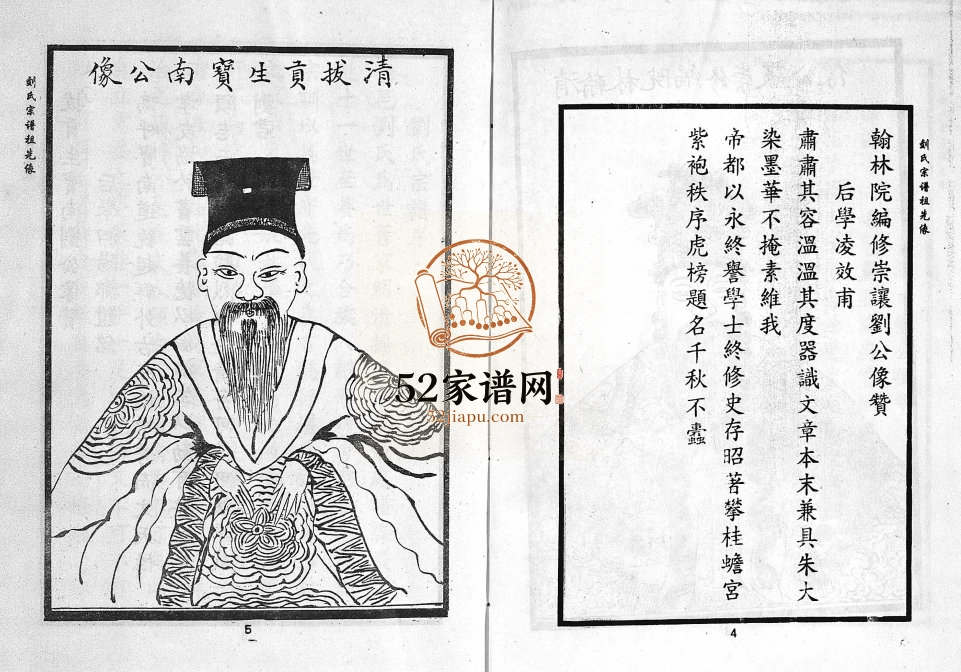 刘氏宗谱祖先像
翰林院編修崇讓劉公像贊
后學凌效甫
肅肅其容溫溫其度器識文章本末兼具朱大
染墨華不掩素維我
帝都以永終譽學士終修史存昭著攀桂蟾宮
紫袍秩序虎榜題名千秋不蠹
4
清拔貢生寶南公像
刘氏宗谱祖先像
5
52家谱网
52jiapu.com